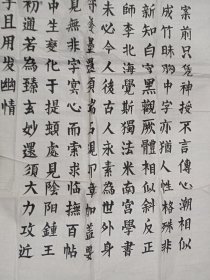 案前只凭神授不言傳心潮相似
成竹昧胸中亦猶人性格殊非
新知白守黑觀厥體相似斜反正
師李北海覺斯獨法米南宮學書
未必今人後古人永素為世外身
章加蓋要
見無非字心而索求臨撫百帖
中生變化于提頓處見陰陽鍾王
初通若為臻玄妙還須大力攻近
子且用发幽情